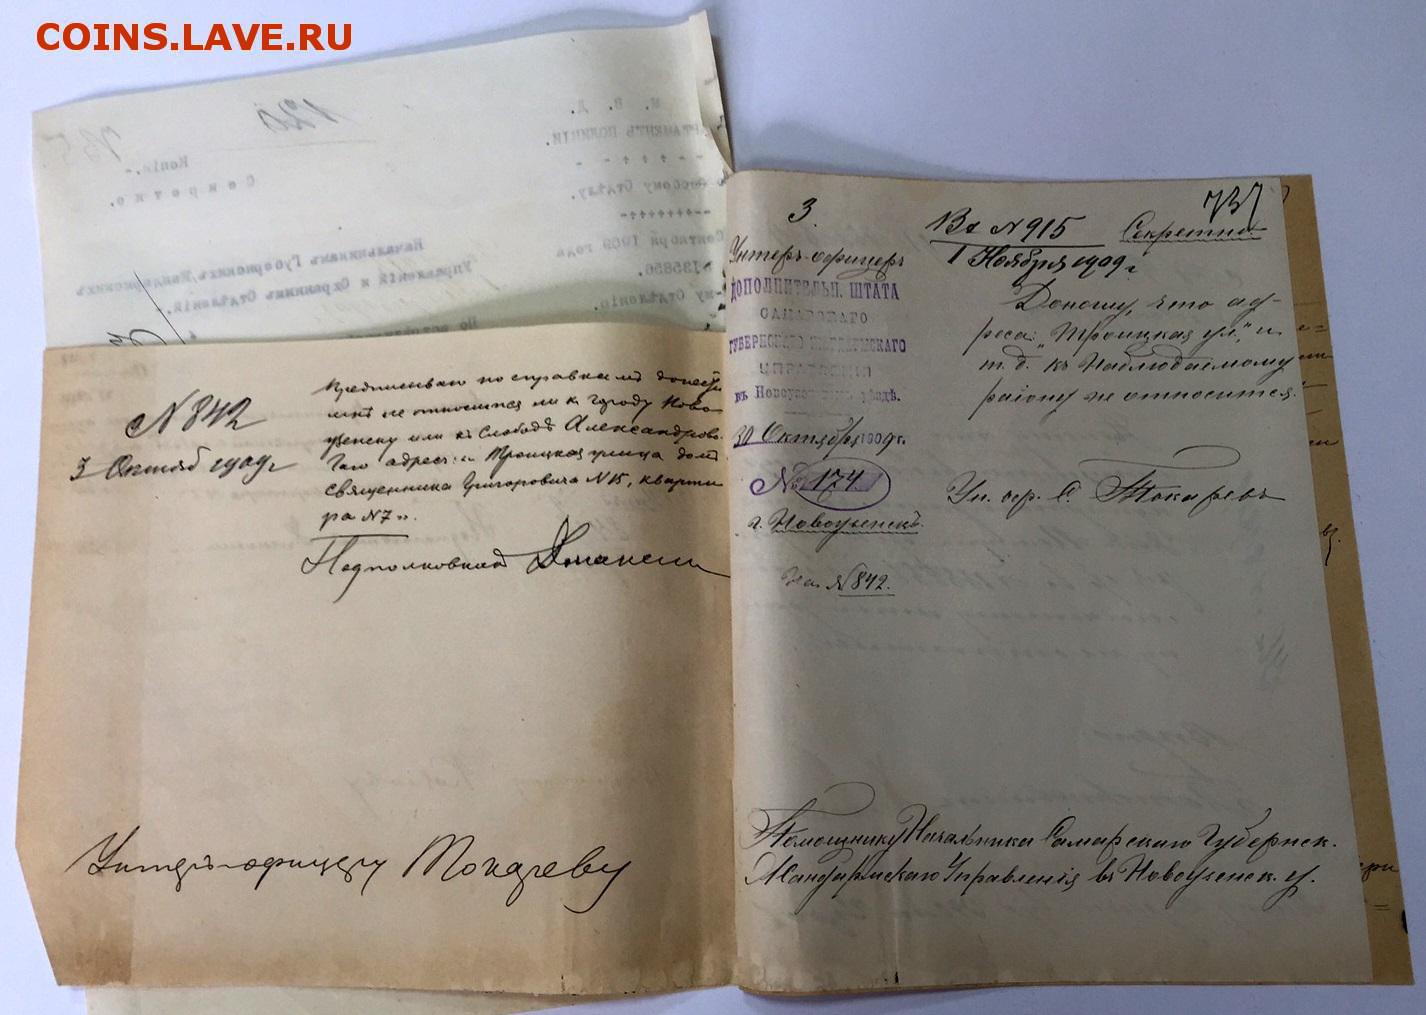 COINS.LAVE.RU
М. В. Д.
ДЕПАРТАМЕНТЪ ПОЛИЦІИ.
Копія.
Секретно.
Особому Отдѣлу.
Сентября 1909 года
№135856.
Начальникамъ Губернскихъ Жандармскихъ
Управленій и Охраннымъ Отдѣленій.
№ 842
3 Октяб 1909 г
Предписываю по справкамъ донести
мнѣ не относится ли к городу Ново
узенску или къ Слободѣ Александрово
Гаю адресъ: „Троицкая улица домъ
священника Григоровича № 15, кварти
ра № 7".
Подполковникъ
Унтеръ-офицеру Токареву
3.
737
Унтеръ-офицеръ
ДОПОЛНИТЕЛЬН. ШТАТА
САМАРСКАГО
ГУБЕРНСКАГО ЖАНДАРМСКАГО
УПРАВЛЕНІЯ
въ Новоузенскомъ уѣздѣ.
30 Октября 1909 г.
№ 174
г. Новоузенскъ.
На № 842.
Вх № 915 Секретно
1 Ноября 1909 г
Доношу, что ад-
реса: „Троицкая ул.", и
т. д. къ Наблюдаемому
району не относится.
Ун. оф. С. Токаревъ
Помощнику Начальника Самарскаго Губернск.
Жандармскаго Управленія въ Новоузенск. у.